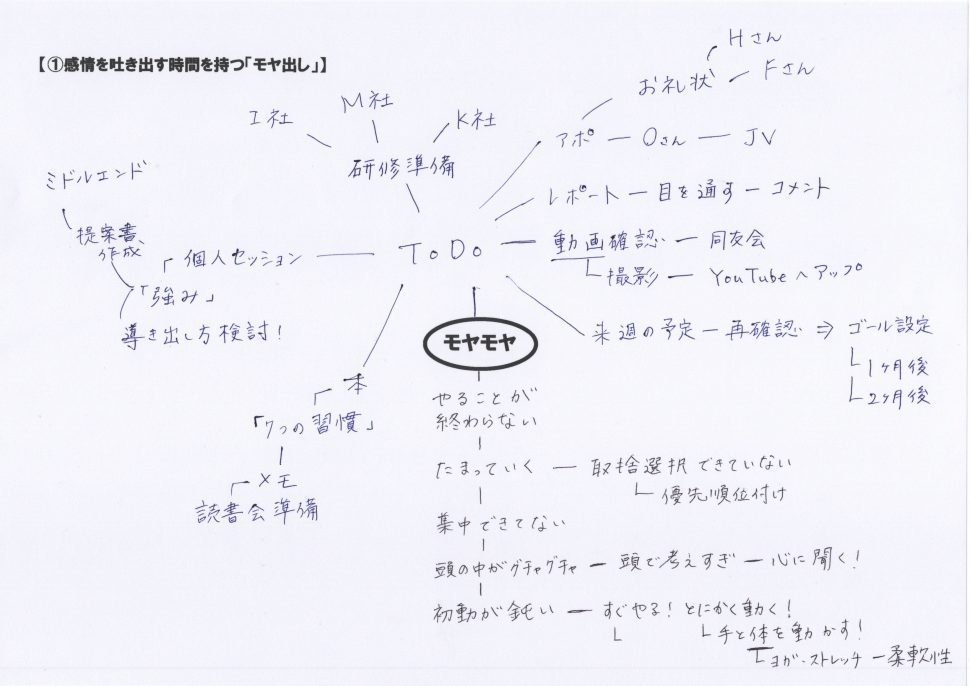 【①感情を吐き出す時間を持つ「モヤ出し」】
Hさん
お礼状
Fさん
I社
M社
K社
アポ
Oさん
JV
研修準備
ミドルエンド
レポート
目を通す
コメント
提案書
作成
個人セッション
ToDo
動画確認
同友会
「強み」
撮影
YouTubeへアップ
導き出し方検討!
来週の予定
再確認
⇒
ゴール設定
1ヶ月後
2ヶ月後
モヤモヤ
本
「7つの習慣」
メモ
読書会準備
やることが
終わらない
たまっていく
取捨選択できていない
優先順位付け
集中できてない
頭の中がグチャグチャ
頭で考えすぎ
心に聞く!
初動が鈍い
すぐやる!とにかく動く!
手と体を動かす!
ヨガ・ストレッチ
柔軟性